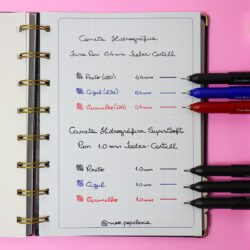 Caneta Hidrográfica
Fine Pen 0.4mm Faber-Castell
Preto (280) 0.4mm
Azul (281) 0.4mm
Vermelho (282) 0.4mm
Caneta Hidrográfica SuperSoft
Pen 1.0mm Faber-Castell
Preto 1.0mm
Azul 1.0mm
Vermelho 1.0mm
papelaria